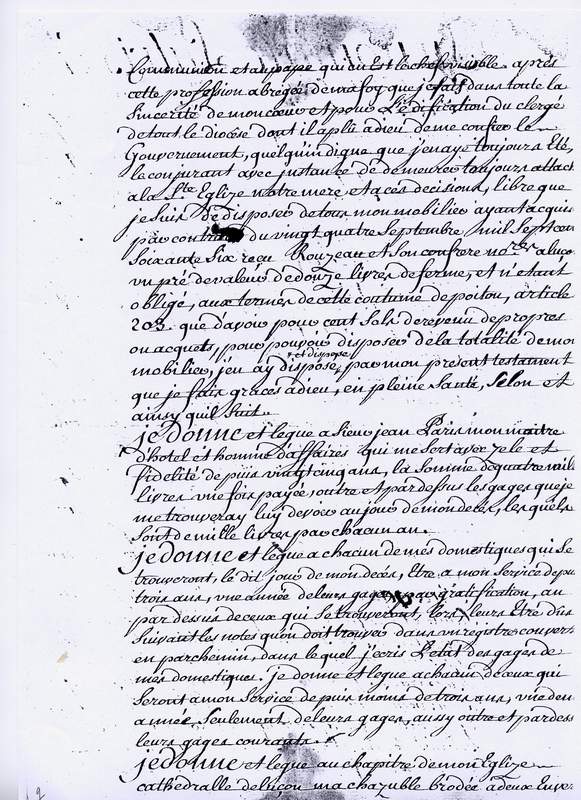 Communion et au pape qui en Est le chef visible. apres
cette profession abregée de ma foy que je fais dans toute la
sincerité de mon coeur et pour L'edification du clergé
de tout le diocése dont il a plû a dieu de me confier le
Gouvernement, quelqu'indigne que j'en aye toujours Eté,
le conjurant avec instance de demeurer toujours attach
a la Ste Eglize notre mere et a ces decisions, libre que
je suis de disposer de tous mon mobilier ayant acquis
par contrat du vingt quatre Septembre mil Sept cen
Soixante Six recu Rouzeau et Son confrere nores a luco
un pré de valeur de douze livres de ferme, et n'etant
obligé, aux termes de cette coutume de poitou, article
203. que d'avoir pour cent Sols de revenu de propres
ou acquets, pour pouvoir disposer de la totalité de mon
mobilier, j'en ay disposé, et dispose par mon present testament
que je fais graces a dieu, en pleine Santé, Selon et
ainsy qu'il Suit.
je Donne et legue a Sieur jean Paris mon maitre
d'hotel et homme d'affaires qui me Sert avec zele et
fidelité depuis vingt cinq ans, la Somme de quatre mille
livres une fois payée, outre et par dessus les gages que je
me trouveray luy devoir au jour de mon decés, lesquels
Sont de mille livres par chacun an.
je donne et legue a chacun de mes domestiques qui Se
trouveront, le dit jour de mon decés, Etre a mon Service depu
trois ans, une année de leurs gages par gratification, au
par dessus de ceux qui Se trouveront, lors, leurs Etre dus
Suivant les notes qu'on doit trouver dans un registre couvert
en parchemin, dans le quel j'ecris L'etat des gages de
mes domestiques. je donne et legue a chacun de ceux qui
Seront a mon Service depuis moins de trois ans, une demi
année Seulement de leurs gages, aussy outre et par dess
leurs gages courants.
je donne et legue au chapitre de mon Eglize
cathedralle de luçon ma chazuble brodée a deux Enve